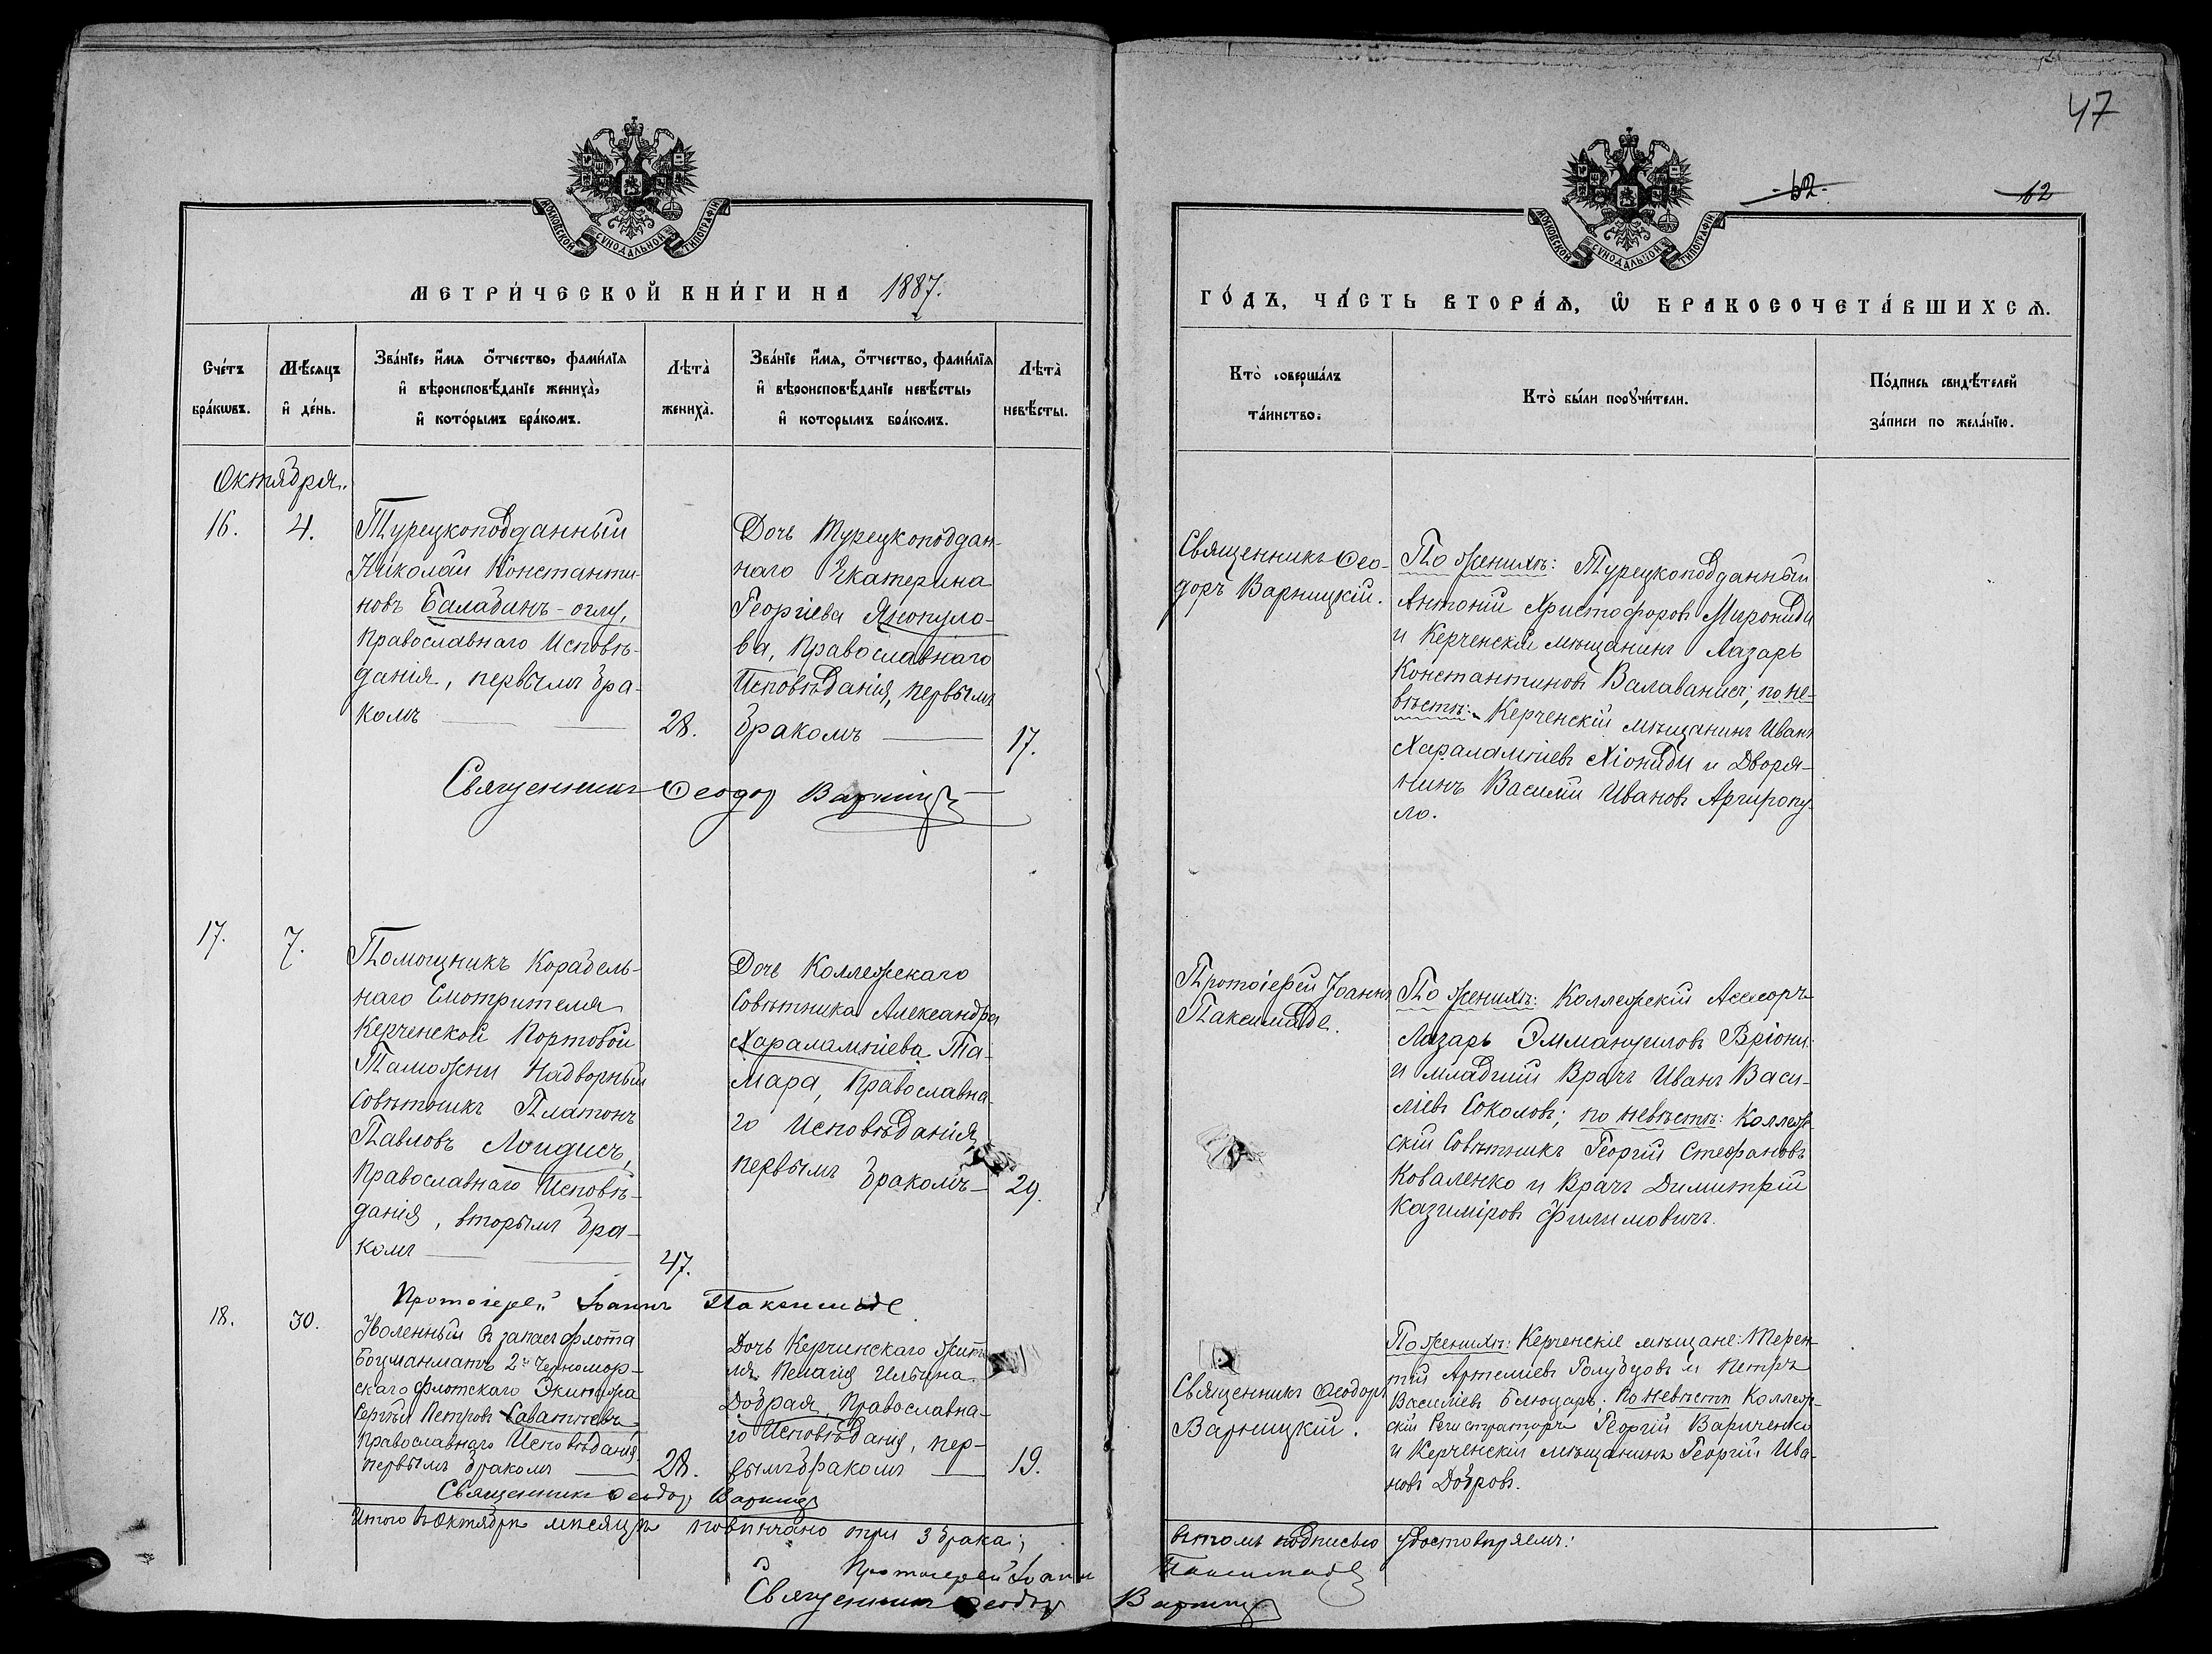 47
62
62
МОСКОВСКОЙ СѴНОДАЛЬНОЙ ТИПОГРАФІИ
МОСКОВСКОЙ СѴНОДАЛЬНОЙ ТИПОГРАФІИ
МЕТРИ́ЧЕСКОЙ КНИ́ГИ НА 1887.
ГО́ДЪ, ЧА́СТЬ ВТОРА́Ѧ, Ѡ БРАКОСОЧЕТА́ВШИХСѦ.
Сче́тъ
бра́кѡвъ.
Мѣ́сяцъ
и҆ де́нь.
Зва́нїе, и҆́мя ѻ҆́тчество, фами́лїя
и҆ вѣроисповѣ́данїе жениха̀,
и҆ кото́рымъ бра́комъ.
Лѣта̀
жениха̀.
Зва́нїе и҆́мя, ѻ҆́тчество, фами́лїя
и҆ вѣроисповѣ́данїе невѣ́сты,
и҆ которымъ бра́комъ.
Лѣта̀
невѣ́сты.
Кто̀ соверша́лъ
та́инство.
Кто̀ бы́ли порꙋчи́тели.
По́дпись свидѣ́телей
за́писи по жела́нїю.
Октября.
16.
4.
Турецкоподданный
Николай Константи-
новъ Балабанъ-оглу,
Православнаго Исповѣ-
данія, первымъ бра-
комъ
28.
Дочь Турецкоподдан-
наго Екатерина
Георгіева Якопуло-
ва, Православнаго
Исповѣданія, первымъ
бракомъ
17.
Священникъ Ѳеодор Варницк
Священникъ Ѳео-
доръ Варницкій.
По женихѣ: Турецкоподданный
Антоній Христофоровъ Мирониди
и Керченскій мѣщанинъ Лазарь
Константиновъ Валаванисъ; по не-
вѣстѣ: Керченскій мѣщанинъ Иванъ
Харалампіевъ Хіониди и Дворя-
нинъ Василій Ивановъ Аргиропу-
ло.
17.
7.
Помощникъ Корабель-
наго Смотрителя
Керченской Портовой
Таможни Надворный
Совѣтникъ Платонъ
Павловъ Лоидисъ,
Православнаго Исповѣ-
данія, вторымъ бра-
комъ
47.
Дочь Коллежскаго
Совѣтника Александра
Харалампіева Та-
мара, Православна-
го Исповѣданія,
первымъ бракомъ
29.
Протоіерей Іоаннъ Паксимаде
Протоіерей Іоаннъ
Паксимаде.
По женихѣ: Коллежскій Асесоръ
Лазарь Эммануиловъ Вріони
и младшій Врачъ Иванъ Васи-
ліевъ Соколовъ; по невѣстѣ: Коллеж-
скій Совѣтникъ Георгій Стефановъ
Коваленко и Врачъ Димитрій
Казиміровъ Филимовичъ.
18.
30.
Уволенный въ запасъ флота
Боцманматъ 2го Черномор-
скаго флотскаго Экипажа
Сергѣй Петровъ Саватѣевъ
Православнаго Исповѣданія
первымъ бракомъ
28.
Дочь Керчинскаго жите-
ля Пелагія Ильина
Добрая, Православна-
го Исповѣданія, пер-
вымъ бракомъ
19.
Священникъ Ѳеодор Варницк
Священникъ Ѳеодоръ
Варницкій.
По женихѣ: Керченскіе мѣщане: Терен-
тій Артеміевъ Голубцовъ и Петръ
Василіевъ Блюцарь; По невѣстѣ Коллеж-
скій Регистраторъ Георгій Вариченко
и Керченскій мѣщанинъ Георгій Ива-
новъ Добровъ.
Итого въ Октябрѣ мѣсяцѣ повѣнчано три 3 брака;
въ томъ подписью удостовѣряемъ:
Протоіерей Іоаннъ Паксимаде
Священникъ Ѳеодор Варницк